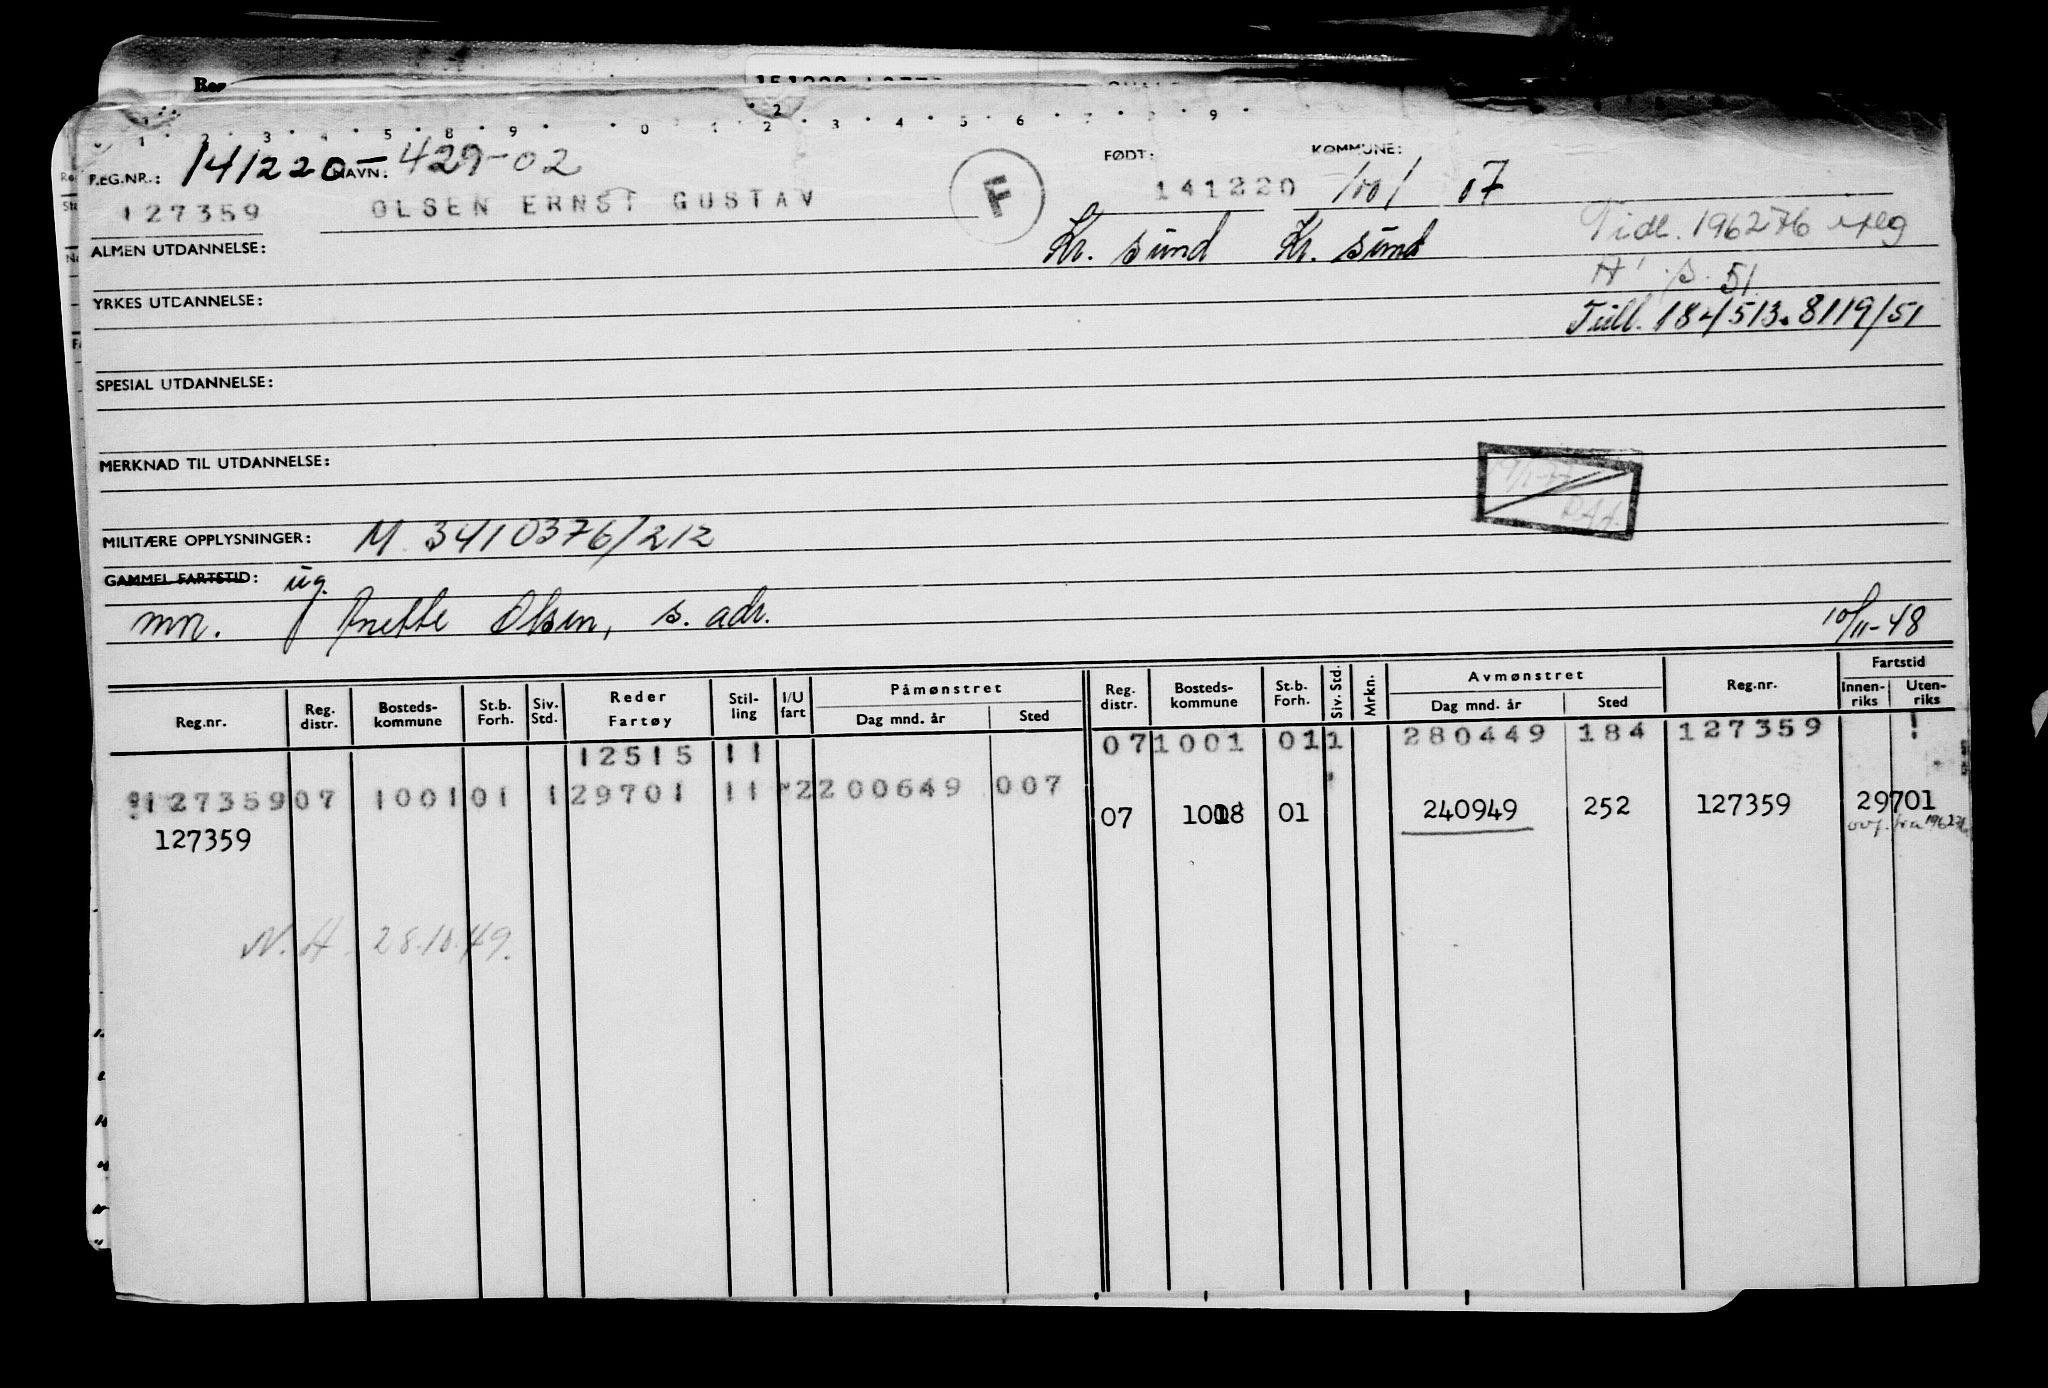 1 2 3 4 5 8 9 0 1 2 3 4 5 6 7 8 9
REG.NR.: 141220- NAVN: 429-02 FØDT: KOMMUNE:
127359 OLSEN ERNST GUSTAV F 141220 1001 07
Kr. sund Kr. sund Tidl. 196276
ALMEN UTDANNELSE:
51
YRKES UTDANNELSE: Tidl. 184513.8119/51
SPESIAL UTDANNELSE:
MERKNAD TIL UTDANNELSE:
MILITÆRE OPPLYSNINGER: M. 3410376/212
GAMMEL FARTSTID: ug.
mr. Anette Olsen, s. adr. 10/11-48
Reg.nr. Reg. distr. Bosteds-kommune St.b. Forh. Siv. Std. Reder Fartøy Stil-ling I/U fart Påmønstret Dag mnd. år Sted Reg. distr. Bosteds-kommune St.b. Forh. Siv. Std. Mrkn. Avmønstret Dag mnd. år Sted Reg.nr. Fartstid Innen-riks Uten-riks
12515 11 07 1001 01 1 280449 184 127359
127359 07 1001 01 1 29701 11 2 200649 007
127359 07 01 240949 252 127359 29701
ovf. fra 196276
N.H. 28.10.49.